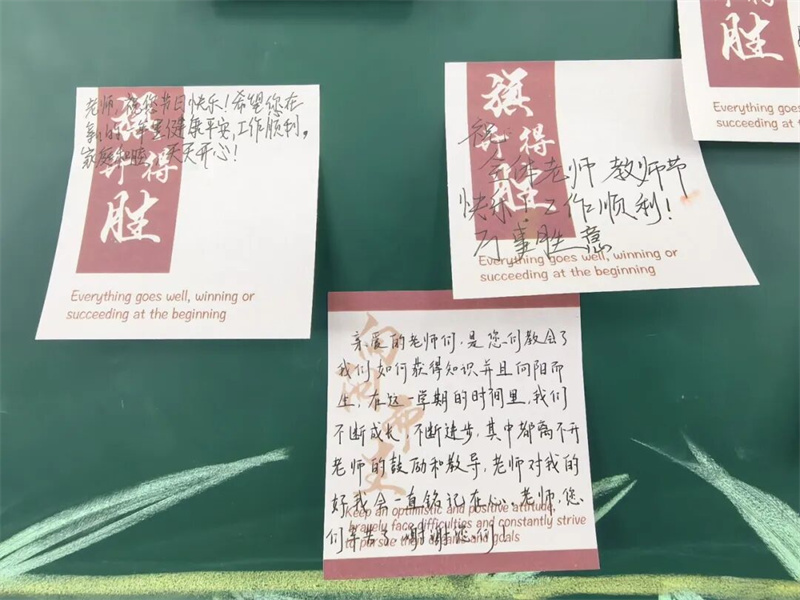 老师，祝您节日快乐！希望您在
新的一年里健康平安，工作顺利，
家庭和睦，天天开心！
旗
开得
胜
Everything goes well, winning or
succeeding at the beginning
旗
开得
胜
祝
全体老师 教师节
快乐！工作顺利！
万事胜意
Everything goes well, winning or
succeeding at the beginning
胜
Everything goes well, winning or
succeeding at the beginning
向阳而生
亲爱的老师们，是您们教会了
我们如何获得知识并且向阳而
生，在这一学期的时间里，我们
不断成长，不断进步，其中都离不开
老师的鼓励和教导，老师对我的
好我会一直铭记在心。老师，您
们辛苦了，谢谢您们！
Keep an optimistic and positive attitude,
bravely face difficulties and constantly strive
to pursue their and goals